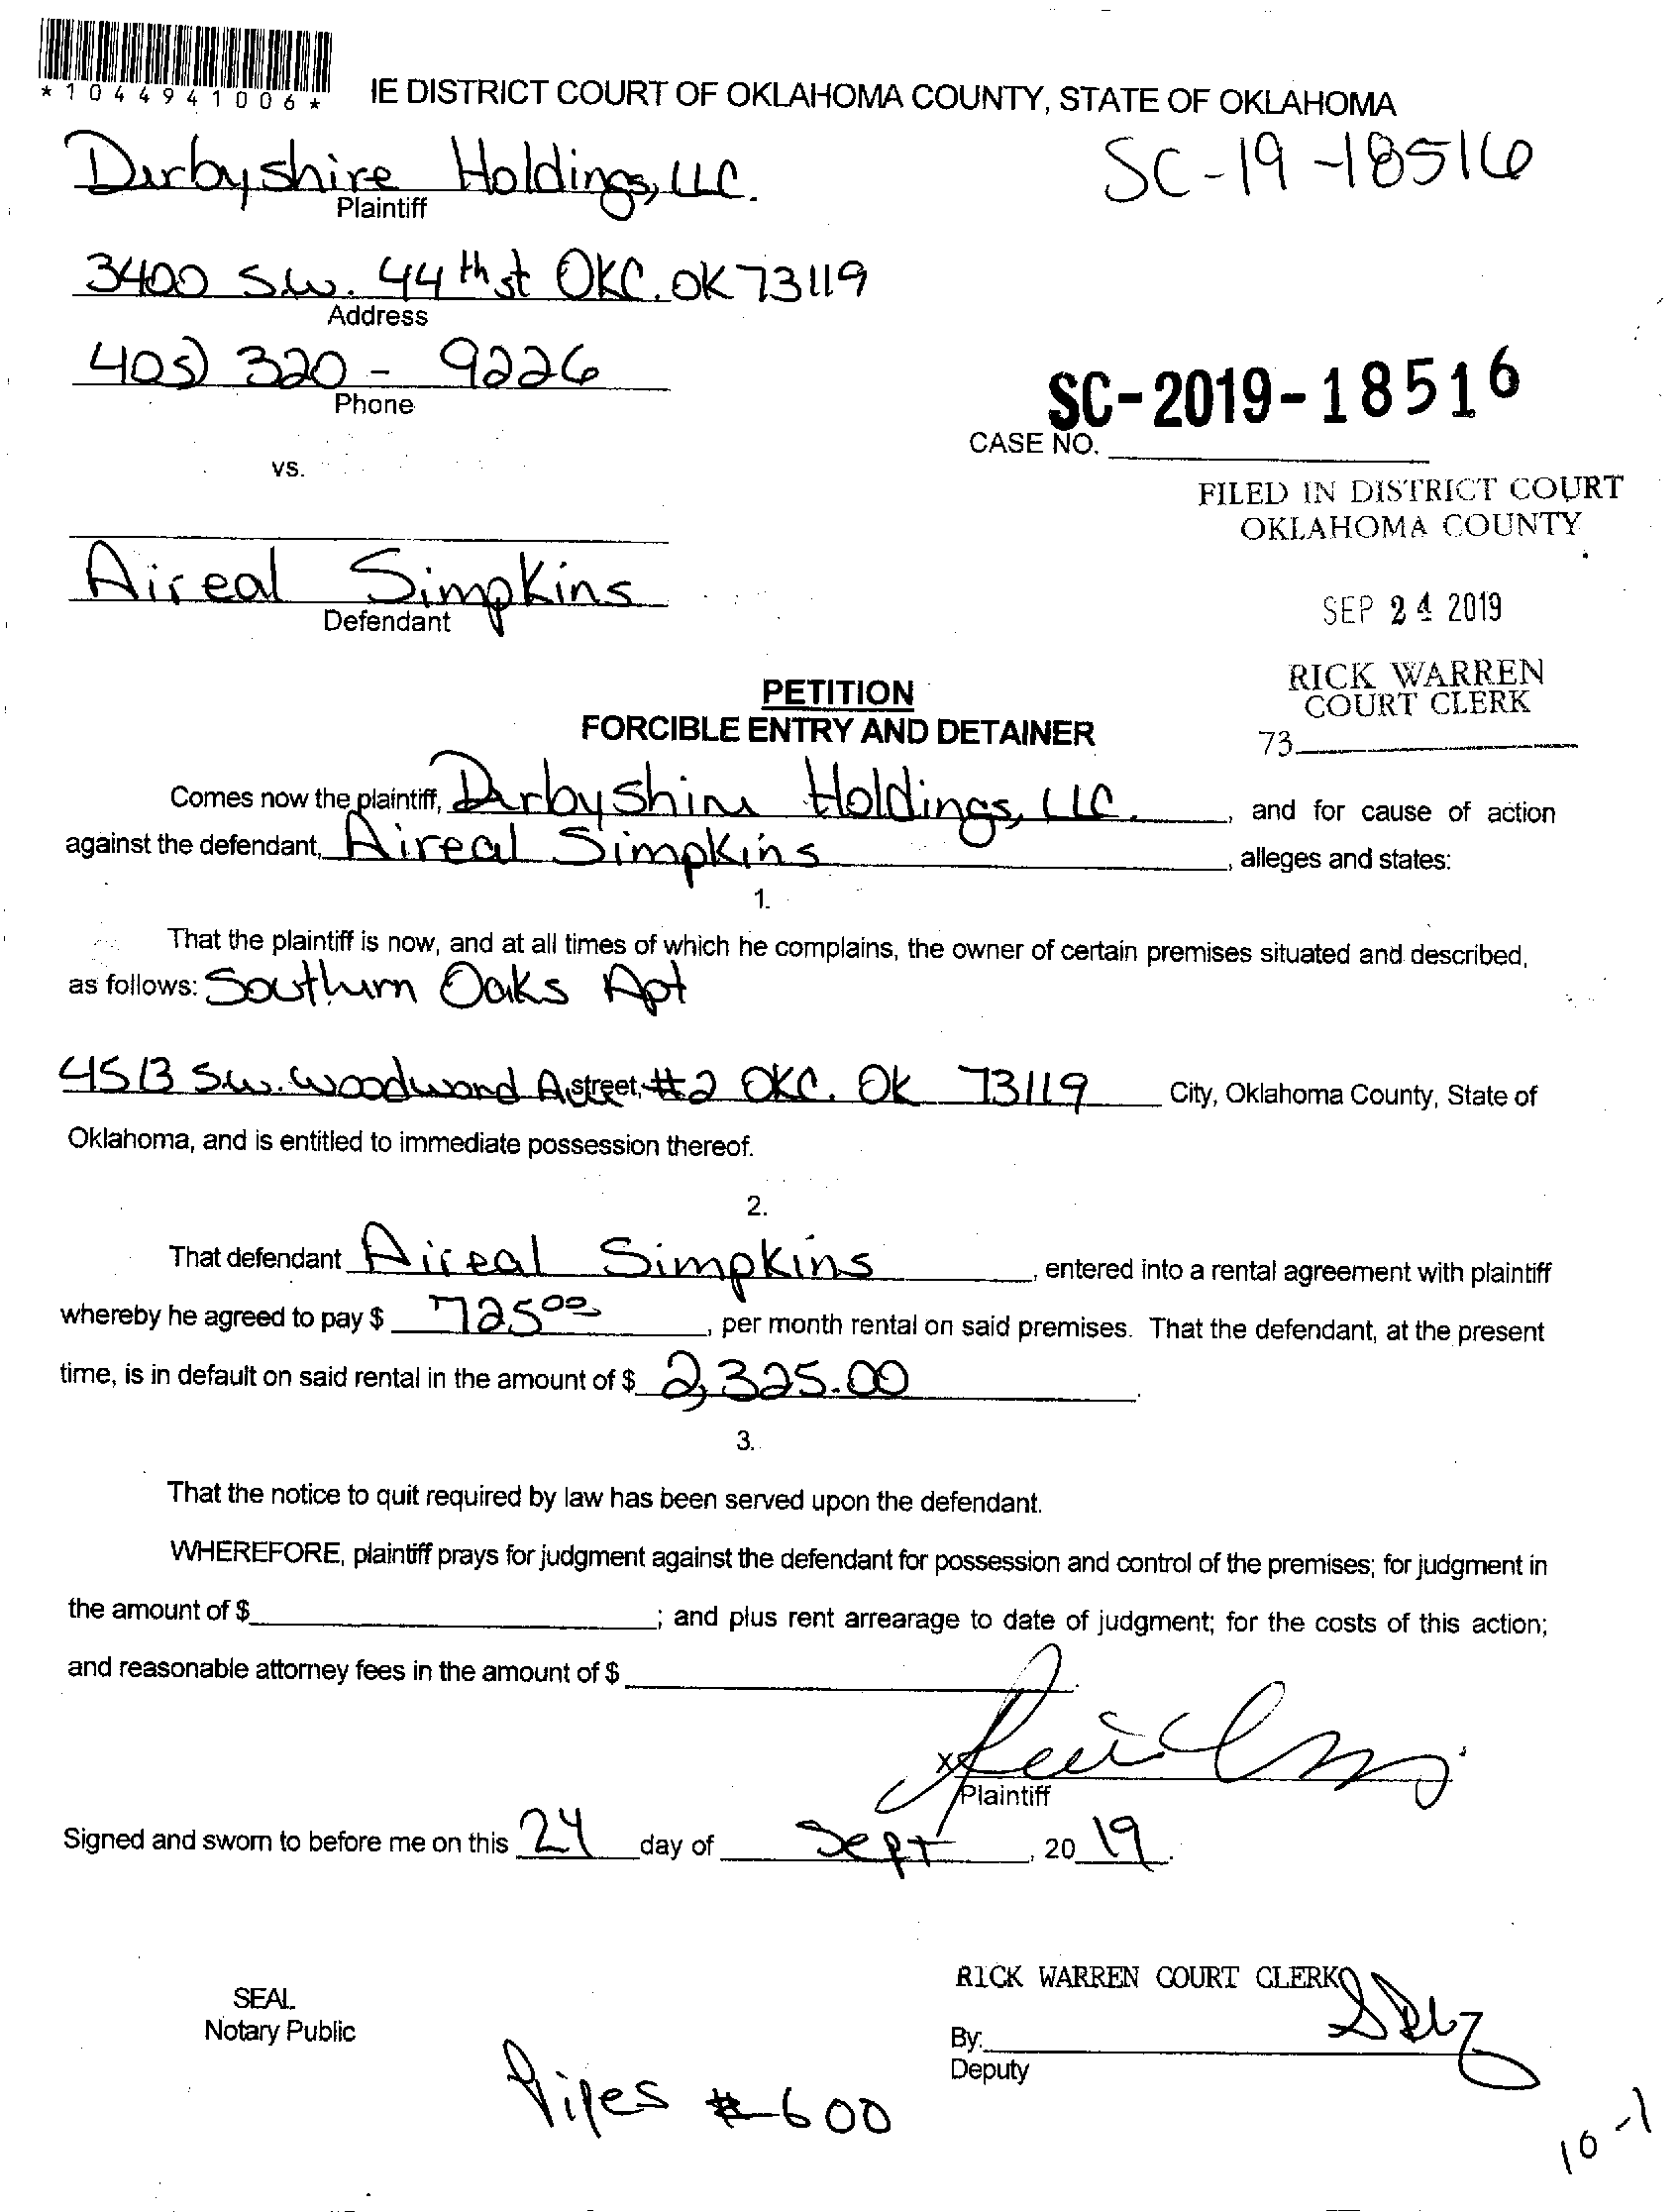 *1044941006*
IE DISTRICT COURT OF OKLAHOMA COUNTY, STATE OF OKLAHOMA
Darbyshire Holdings, LLC.
SC-19-18516
Plaintiff
3400 S.W. 44th st OKC. OK 73119
Address
405) 320 - 9226
Phone
SC-2019-18516
CASE NO.
vs.
FILED IN DISTRICT COURT
OKLAHOMA COUNTY
Aireal Simpkins
Defendant
SEP 24 2019
RICK WARREN
COURT CLERK
73
PETITION
FORCIBLE ENTRY AND DETAINER
Comes now the plaintiff, Darbyshire Holdings, LLC. , and for cause of action
against the defendant, Aireal Simpkins , alleges and states:
1.
That the plaintiff is now, and at all times of which he complains, the owner of certain premises situated and described,
as follows: Southern Oaks Apt
4513 S.W. Woodward A street, #2 OKC. OK 73119 City, Oklahoma County, State of
Oklahoma, and is entitled to immediate possession thereof.
2.
That defendant Aireal Simpkins , entered into a rental agreement with plaintiff
whereby he agreed to pay $ 725.00 , per month rental on said premises. That the defendant, at the present
time, is in default on said rental in the amount of $ 2,325.00 .
3.
That the notice to quit required by law has been served upon the defendant.
WHEREFORE, plaintiff prays for judgment against the defendant for possession and control of the premises; for judgment in
the amount of $ ; and plus rent arrearage to date of judgment; for the costs of this action;
and reasonable attorney fees in the amount of $
X
Plaintiff
Signed and sworn to before me on this 24 day of Sept , 20 19.
RICK WARREN COURT CLERK
SEAL
Notary Public
By:
Deputy
Pipes #600
10-1